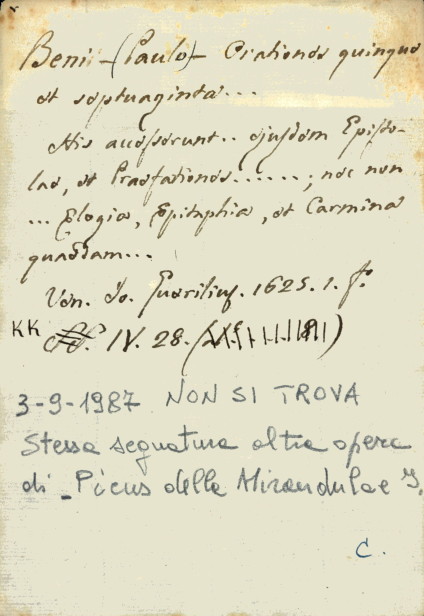 Beni - (Paulo) - Orationes quinque
et septuaginta...
His accesserunt.. ejusdem Episto-
lae, et Praefationes......; nec non
... Elogia, Epitaphia, et Carmina
quaedam...
Ven. Io. Guerilius. 1625. 1. f.º
KK IV. 28.
3-9-1987 NON SI TROVA
Stessa segnatura altra opera
di - Picus della Mirandulae J.
C.